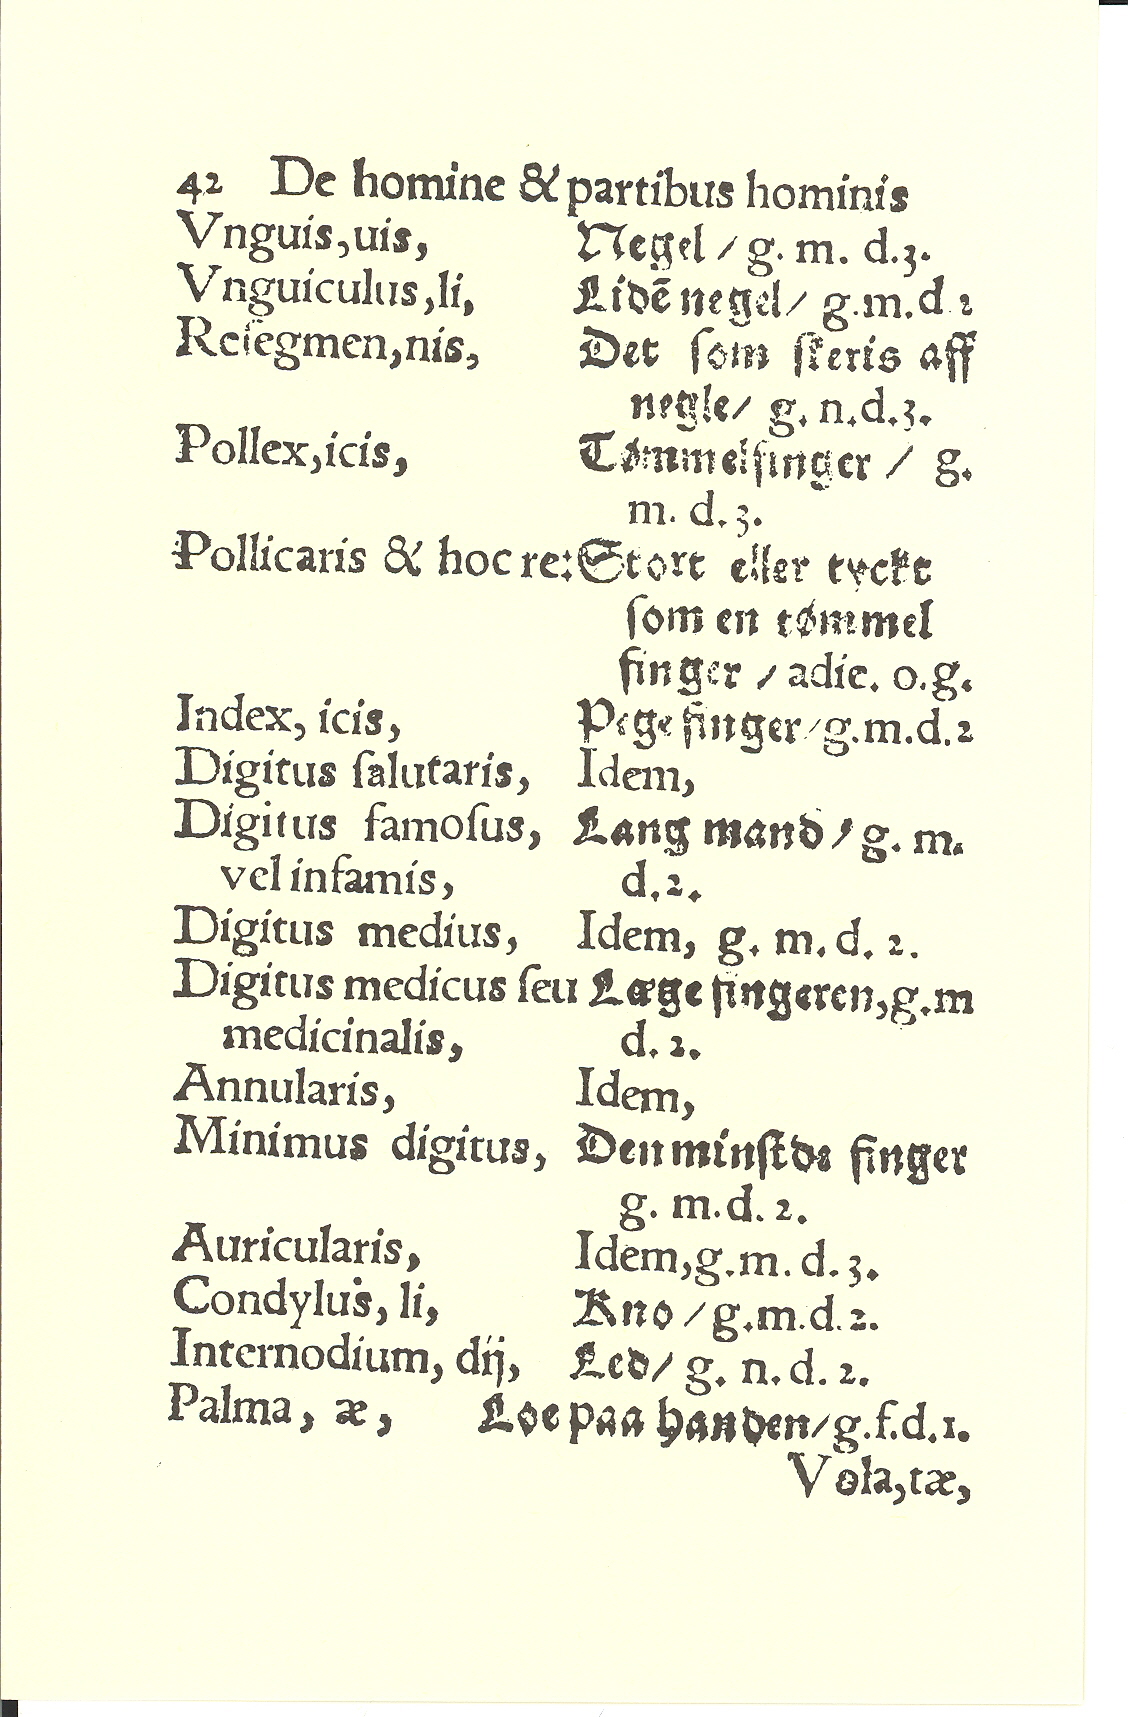 42 De homine & partibus hominis
Vnguis,uis, Negel / g. m. d.3.
Vnguiculus,li, Lidē negel/ g.m.d.2
Reſegmen,nis, Det ſom ſkeris aff
negle/ g. n.d.3.
Pollex,icis, Tømmelfinger / g.
m. d.3.
Pollicaris & hoc re: Stort eller tyckt
ſom en tømmel
finger / adie. o.g.
Index, icis, Pege finger/g.m.d.2
Digitus ſalutaris, Idem,
Digitus famoſus, Lang mand / g. m.
vel infamis, d.2.
Digitus medius, Idem, g. m. d. 2.
Digitus medicus ſeu Læge fingeren,g.m
medicinalis, d. 2.
Annularis, Idem,
Minimus digitus, Den minſtde finger
g. m.d. 2.
Auricularis, Idem,g.m. d. 3.
Condylus, li, Kno / g.m.d.2.
Internodium, dij, Led/ g. n. d. 2.
Palma, æ, Loe paa handen/g.f.d.1.
Vola,tæ,